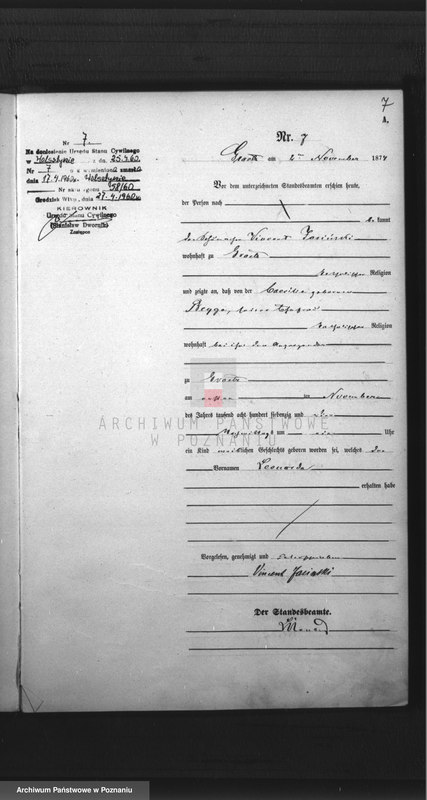 7
A.
Nr 7
Na doniesienie Urzędu Stanu Cywilnego
w z dn. 25.4.60
Nr 7 o unieważnienia zmarła
dnia 17.4.1960
Nr skorogonu 58/60
Grodzisk Wlkp., dnia 27.4.1960
KIEROWNIK
Urzędu Stanu Cywilnego
(Stanisław Dworzak)
Zastępca
Nr. 7
Graetz am 2ten November 1874
Vor dem unterzeichneten Standesbeamten erschien heute,
der Person nach
kannt
der Vincent Jasiński
wohnhaft zu Graetz
katholischer Religion
und zeigte an, daß von der Caecilie geborenen
seiner Ehefrau
katholischer Religion
wohnhaft bei ihm dem Anzeigenden
zu Graetz
am ersten ten November
des Jahres tausend acht hundert siebenzig und vier
Nachmittags um ein Uhr
ein Kind weiblichen Geschlechts geboren worden sei, welches den
Vornamen Leonarda
erhalten habe
Vorgelesen, genehmigt und unterschrieben
Vincent Jasiński
Der Standesbeamte.
ARCHIWUM PAŃSTWOWE
W POZNANIU
Archiwum Państwowe w Poznaniu